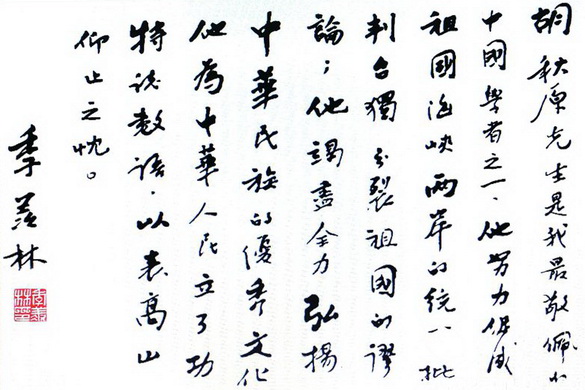 胡秋原先生是我最敬佩的
中國學者之一、他努力促成
祖國海峽两岸的統一、批
判台獨分裂祖國的謬
論；他竭盡全力弘揚
中華民族的優秀文化
他為中華人民立了功
特誌數語，以表高山
仰止之忱。
季羡林